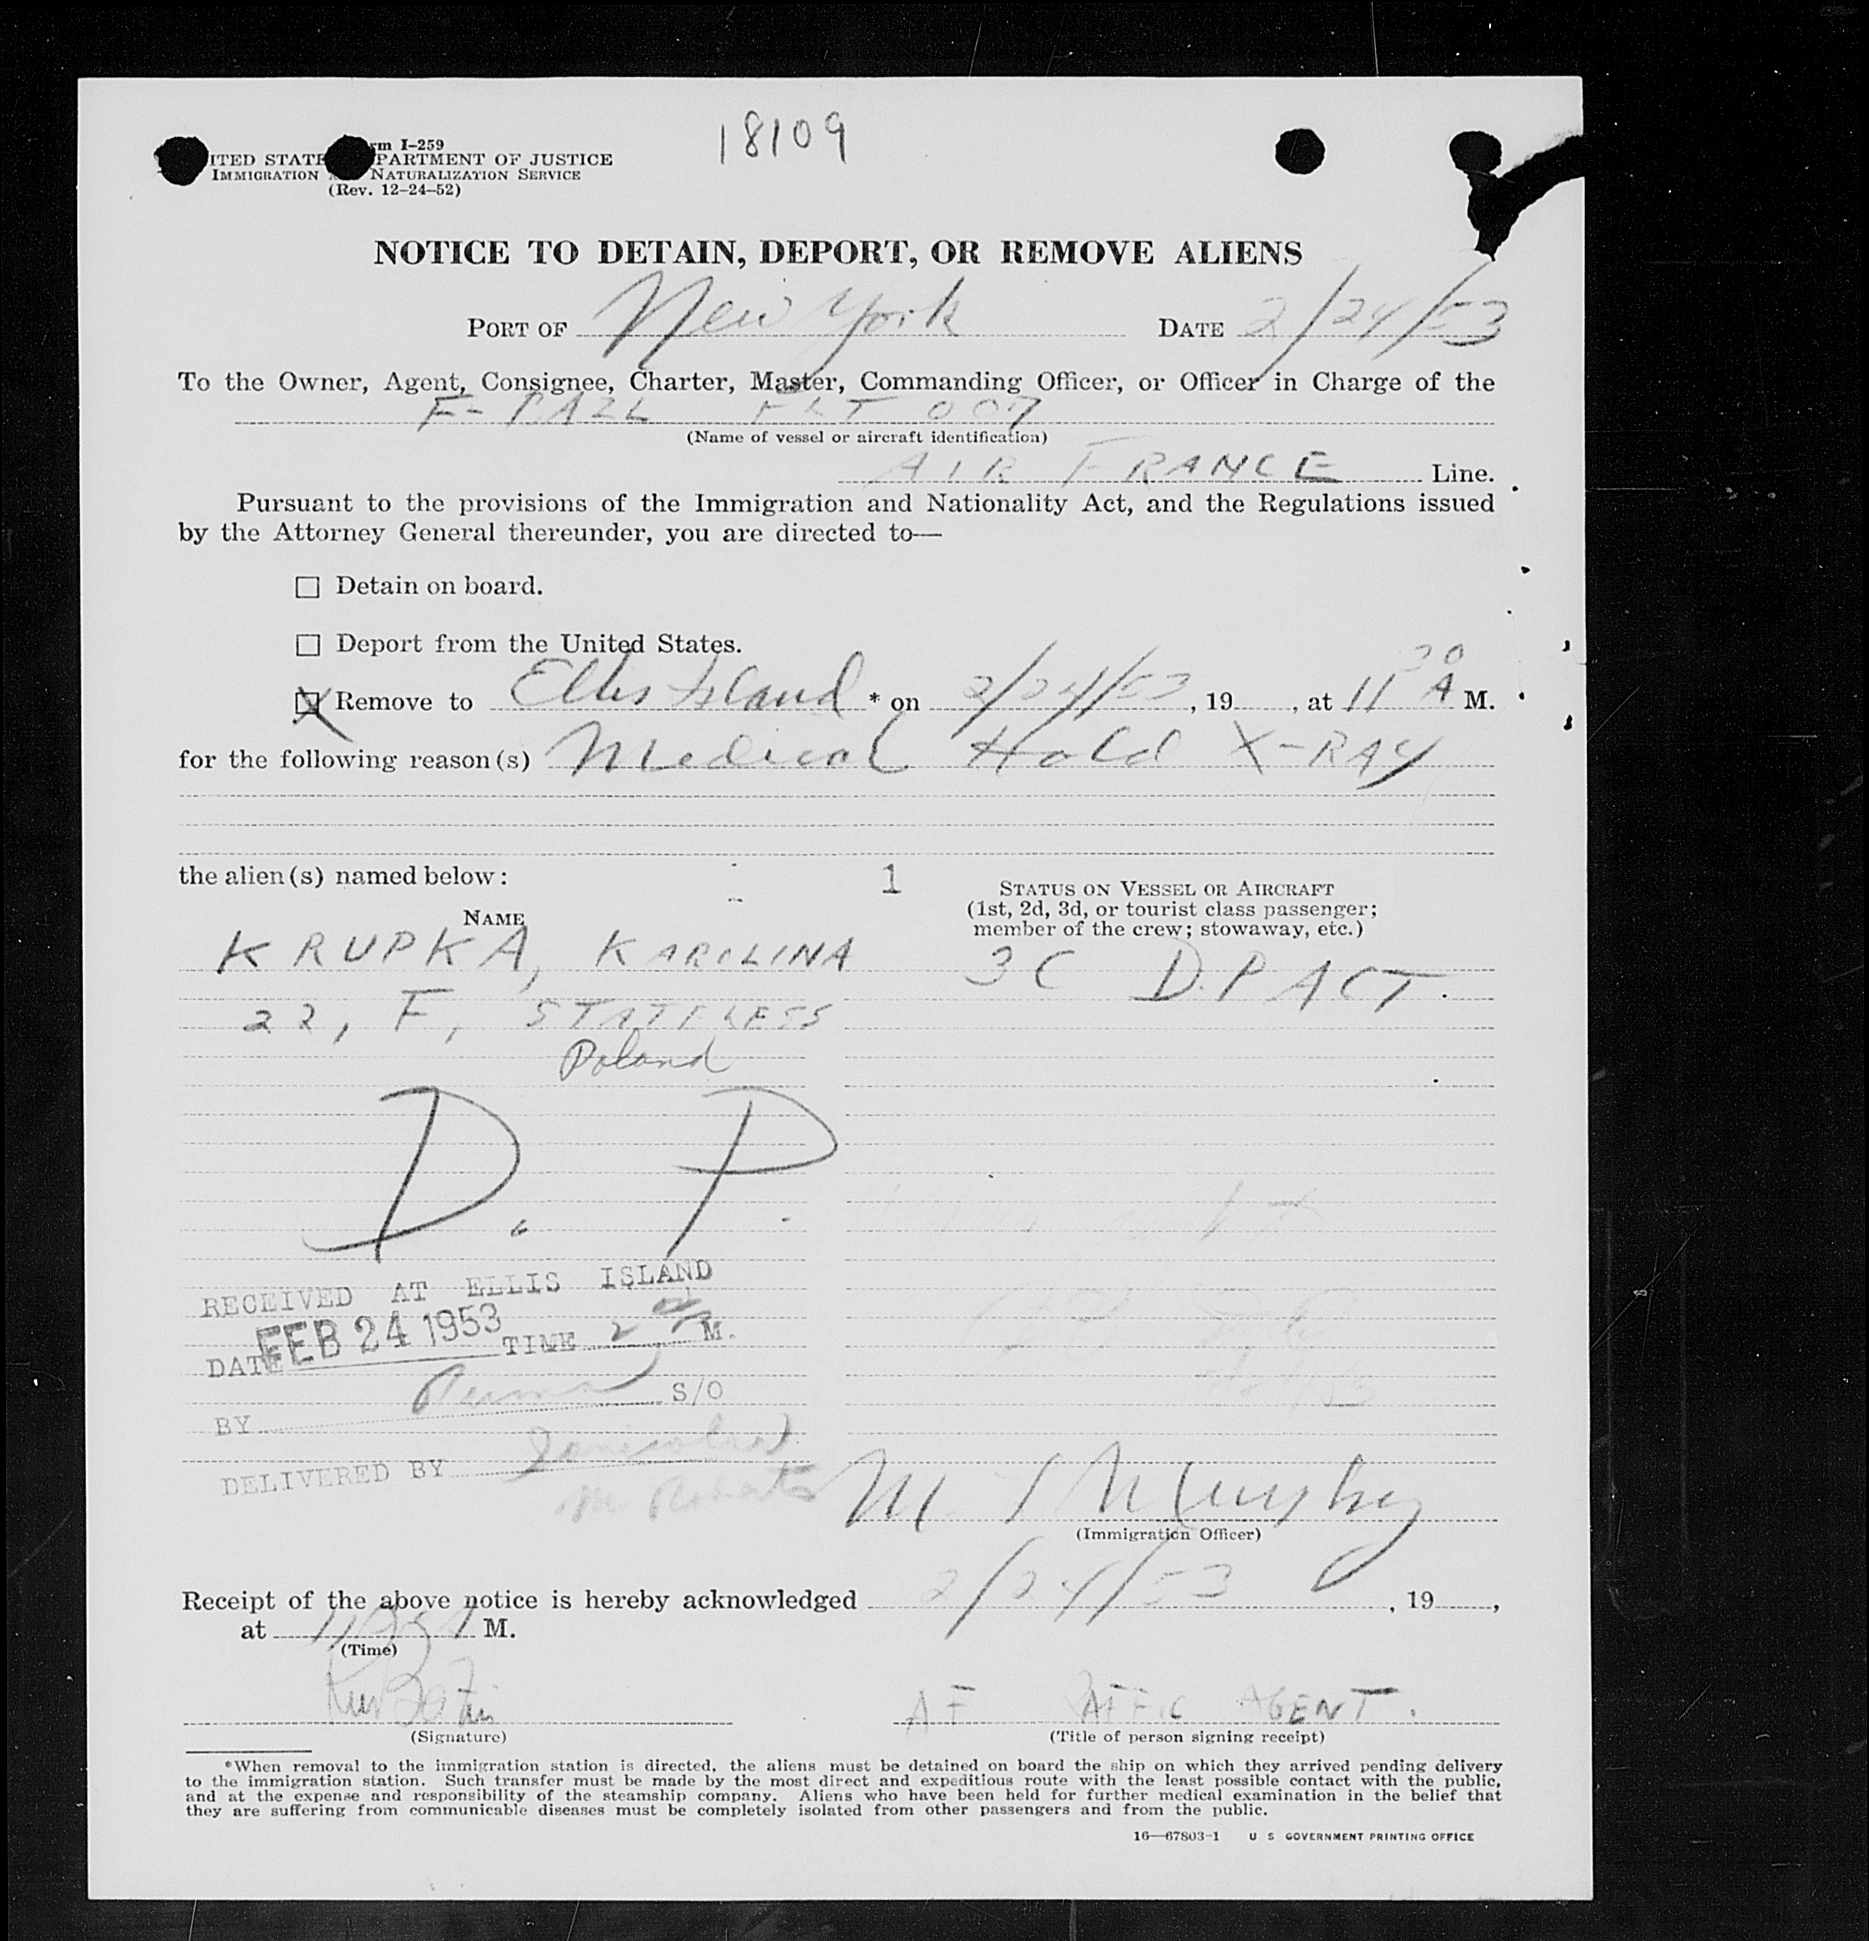 18109
rm I-259
ITED STATE PARTMENT OF JUSTICE
IMMIGRATION NATURALIZATION SERVICE
(Rev. 12-24-52)
NOTICE TO DETAIN, DEPORT, OR REMOVE ALIENS
PORT OF New York DATE 2/24/53
To the Owner, Agent, Consignee, Charter, Master, Commanding Officer, or Officer in Charge of the
FLT 007
(Name of vessel or aircraft identification)
AIR FRANCE Line.
Pursuant to the provisions of the Immigration and Nationality Act, and the Regulations issued
by the Attorney General thereunder, you are directed to—
☐ Detain on board.
☐ Deport from the United States.
X Remove to Ellis Island * on 2/24/53, 19 , at 11 30 A M.
for the following reason(s) Medical Hold X-RAY
the alien(s) named below: 1
STATUS ON VESSEL OR AIRCRAFT
(1st, 2d, 3d, or tourist class passenger;
member of the crew; stowaway, etc.)
NAME
KRUPKA, KAROLINA 3C D.P ACT.
22, F, STATELESS
Poland
D. P.
RECEIVED AT ELLIS ISLAND
DATE FEB 24 1953 TIME 2 M.
BY S/O
DELIVERED BY
(Immigration Officer)
Receipt of the above notice is hereby acknowledged 2/24/53, 19 ,
at M.
(Time)
AF AGENT.
(Signature) (Title of person signing receipt)
*When removal to the immigration station is directed, the aliens must be detained on board the ship on which they arrived pending delivery
to the immigration station. Such transfer must be made by the most direct and expeditious route with the least possible contact with the public,
and at the expense and responsibility of the steamship company. Aliens who have been held for further medical examination in the belief that
they are suffering from communicable diseases must be completely isolated from other passengers and from the public.
16—67803-1 U S GOVERNMENT PRINTING OFFICE